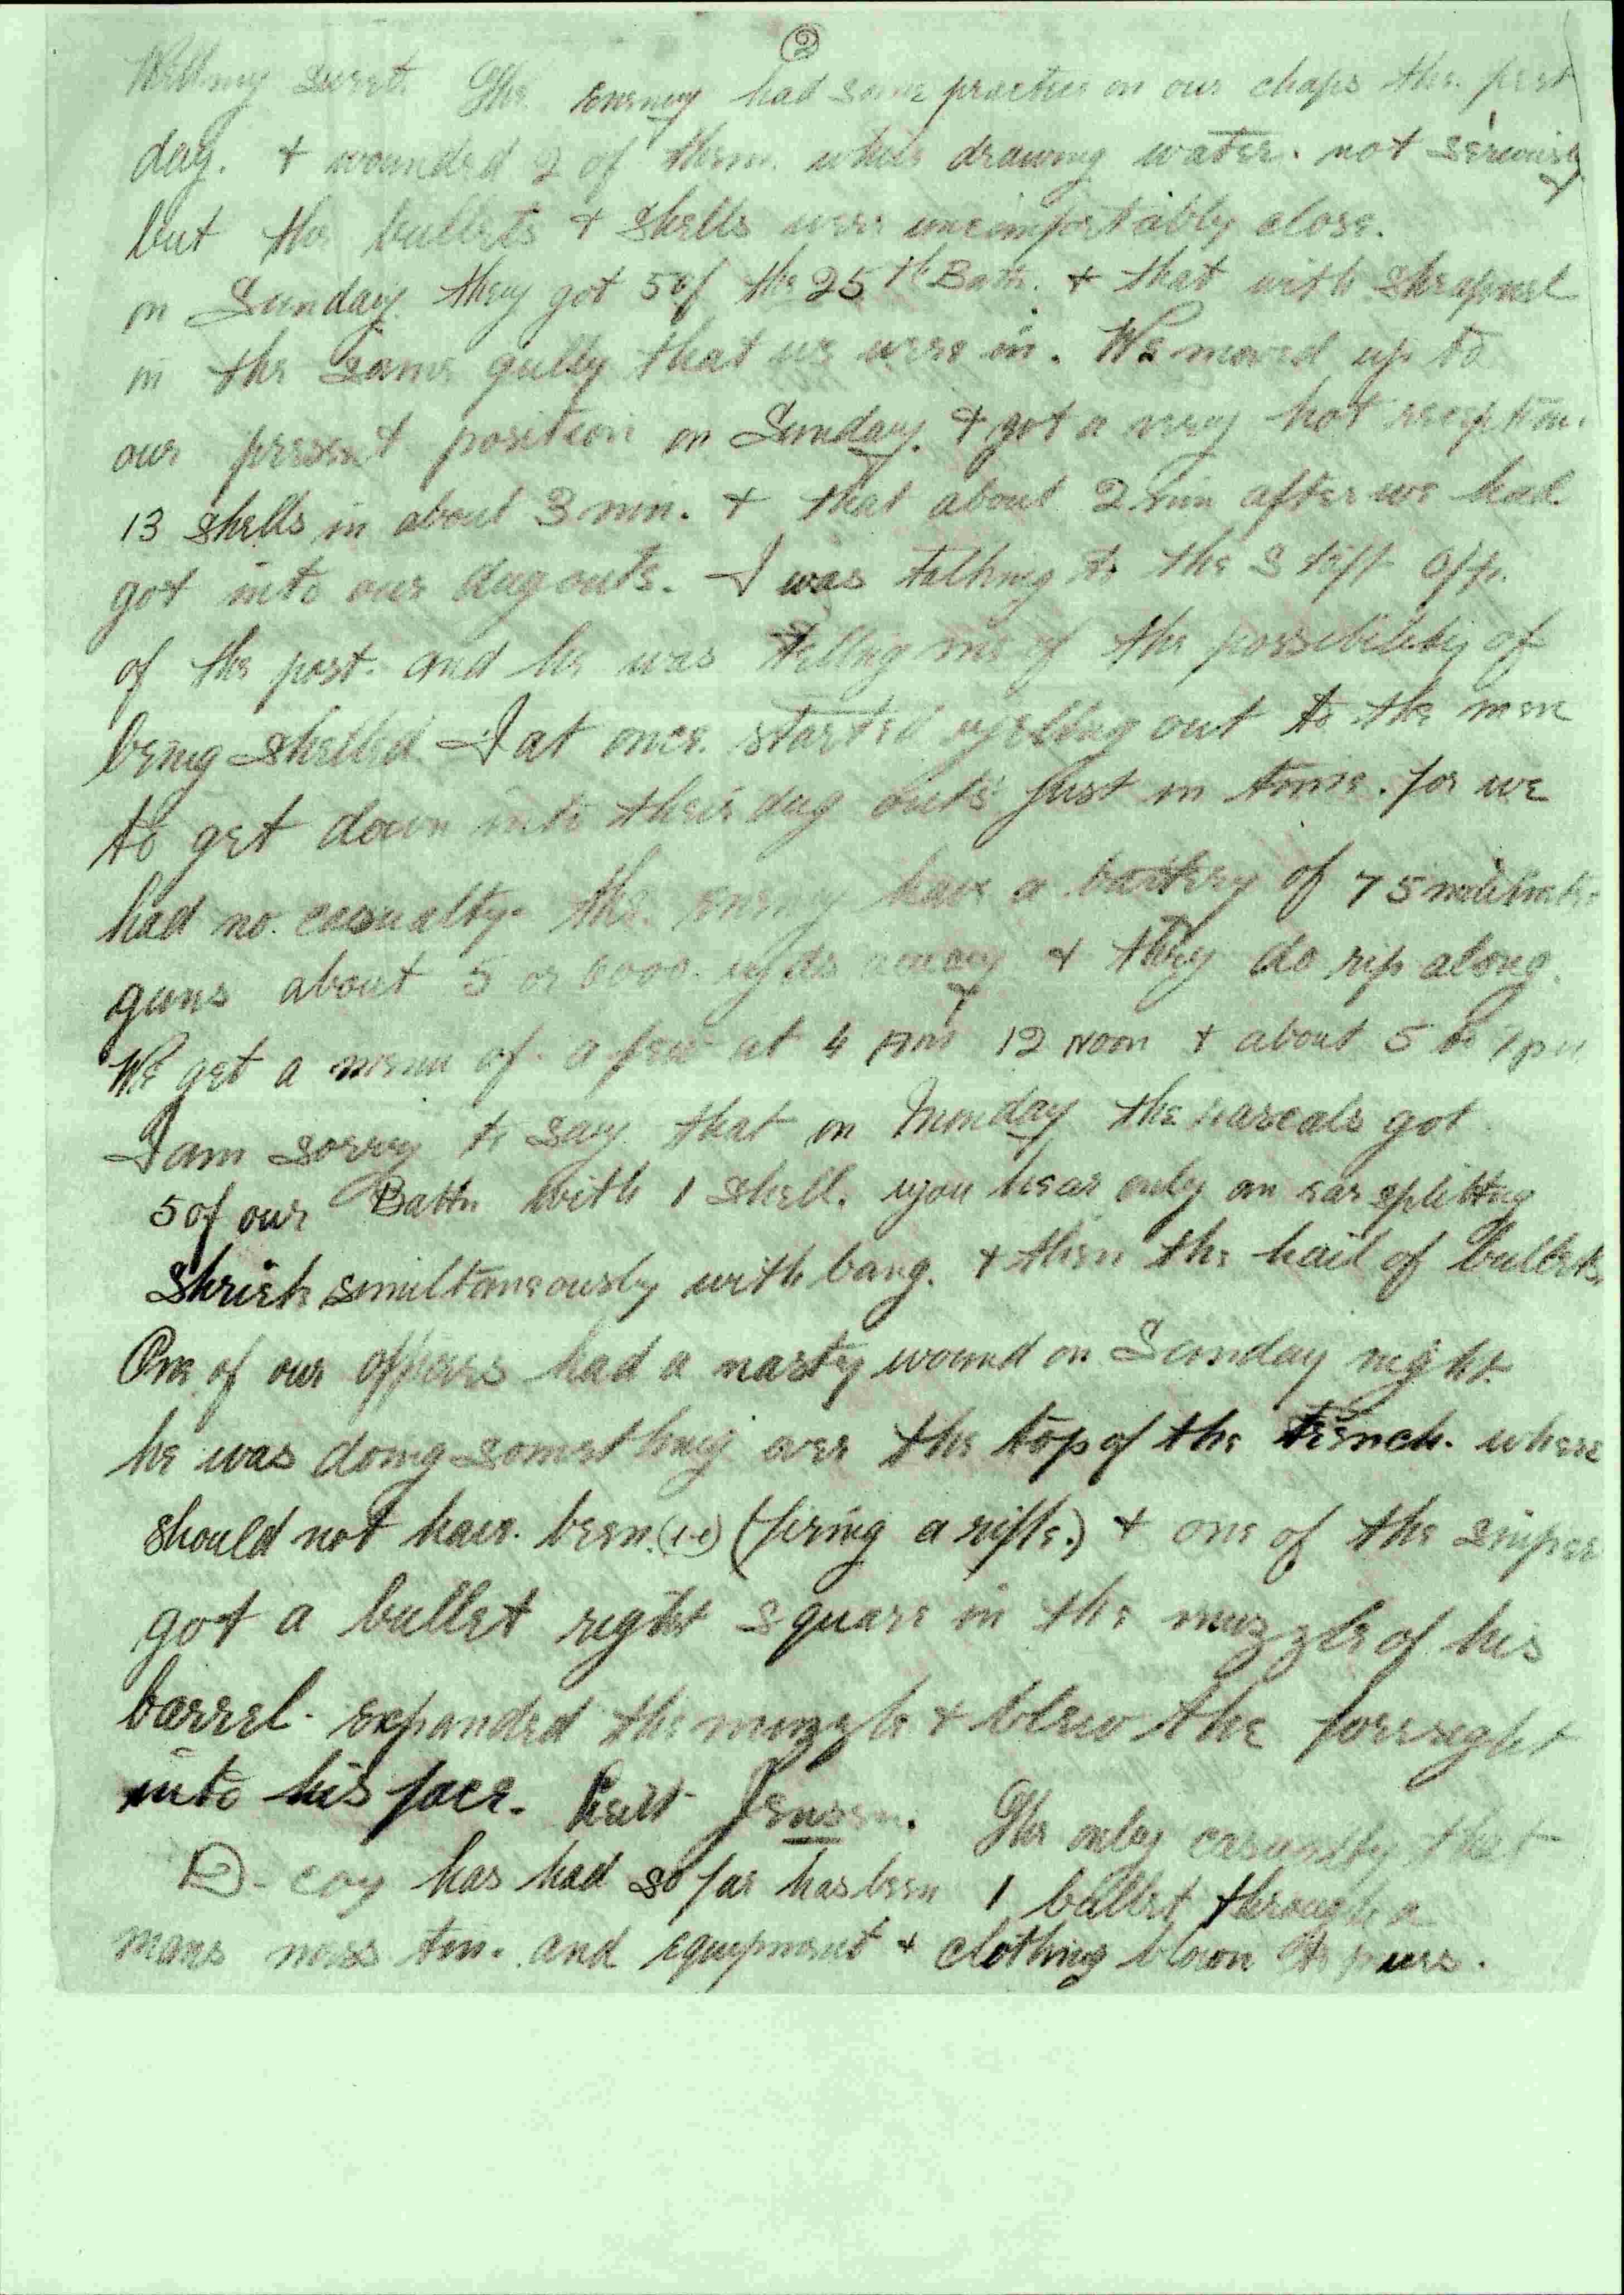 ②
Well my sweet. The enemy had some practice on our chaps the first
day. + wounded 2 of them. while drawing water. not seriously
but the bullets + shells were uncomfortably close.
on Sunday. they got 5 of the 25th Battn. + that with shrapnel
in the same gully that we were in. We moved up to
our present position on Sunday. + got a very hot reception.
13 shells in about 3 min. + that about 2 min after we had
got into our dug outs. I was talking to the Staff Offr.
of the post. and he was telling me of the possibility of
being shelled. I at once. started yelling out to the men
to get down into their dug outs just in time. for we
had no. casualty. the. enemy have a battery of 75
guns about 5 or 6000. yds away + they do rip along.
We get a menu of. a few at 4 12 Noon + about 5 to 7 pm
I am sorry to say that on Monday the rascals got
5 of our Battn with 1 shell. you hear only an ear splitting
shriek simultaneously with bang. + then the hail of bullets.
One of our officers had a nasty wound on Sunday night.
he was doing something over the top of the trench. where
should not have. been. (i-e) (firing a rifle.) + one of the
got a bullet right square in the muzzle of his
barrel. expanded the muzzle + blew the foresight
into his face. Lieut Jensen. The only casualty that
D- coy has had so far has been 1 bullet through a
mans mess tin. and equipment + clothing blown to